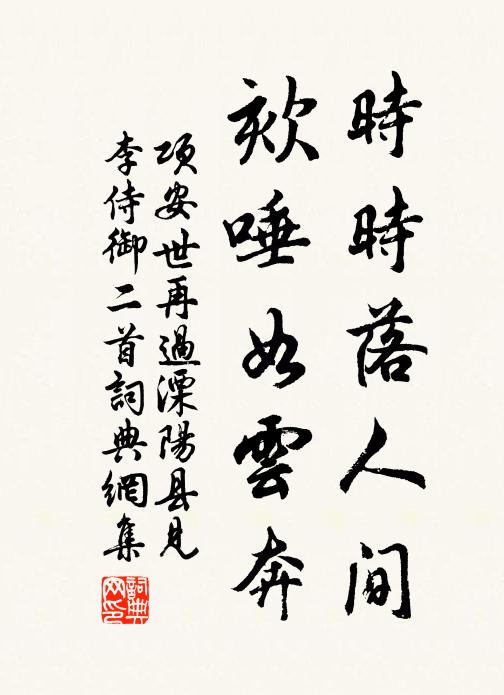 時時落人间
欬唾如雲奔
项安世再過溧陽县见
李侍御二首詞典網集
詞典